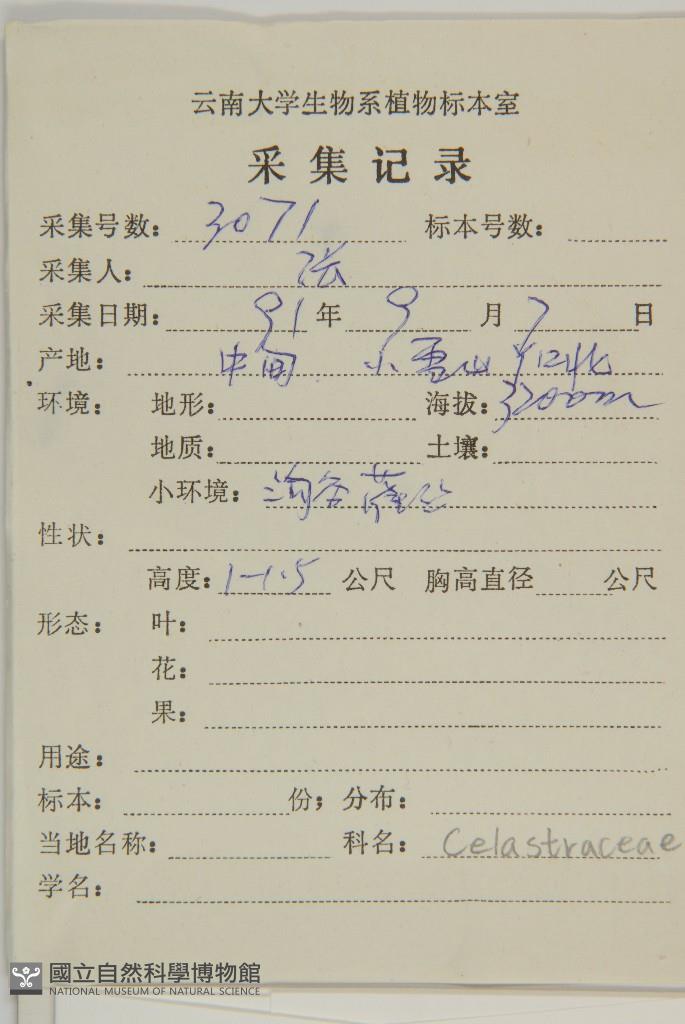 云南大学生物系植物标本室
采集记录
采集号数: 3071 标本号数:
采集人: 张
采集日期: 91 年 9 月 7 日
产地: 中甸 小雪山丫口北
环境: 地形: 海拔: 3200m
地质: 土壤:
小环境: 沟谷
性状:
高度: 1-1.5 公尺 胸高直径 公尺
形态: 叶:
花:
果:
用途:
标本: 份; 分布:
当地名称: 科名: Celastraceae
学名:
國立自然科學博物館
NATIONAL MUSEUM OF NATURAL SCIENCE